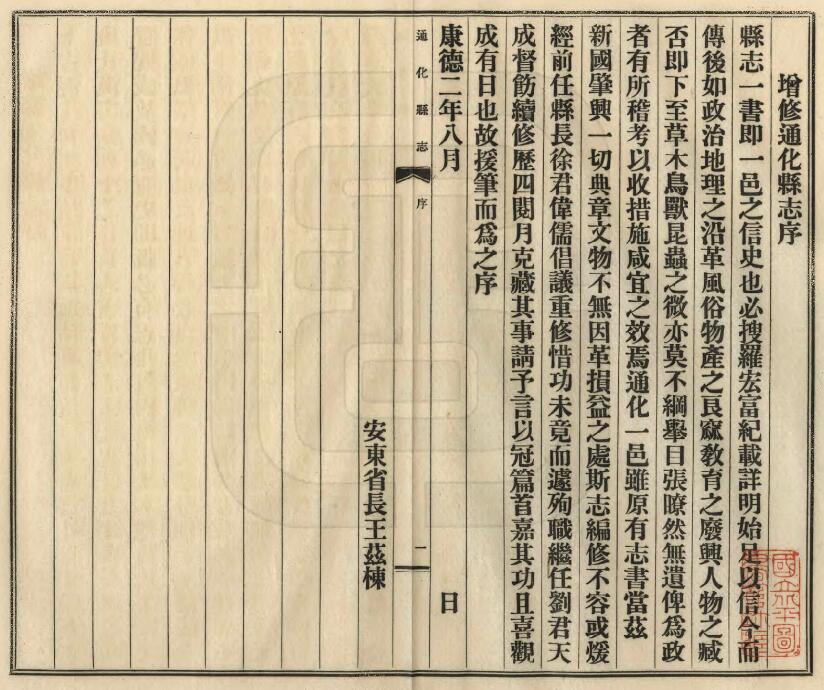 增修通化縣志序
縣志一書即一邑之信史也必搜羅宏富紀載詳明始足以信今而
傳後如政治地理之沿革風俗物產之良窳敎育之廢興人物之臧
否即下至草木鳥獸昆蟲之微亦莫不綱舉目張瞭然無遺俾爲政
者有所稽考以收措施咸宜之效焉通化一邑雖原有志書當茲
新國肇興一切典章文物不無因革損益之處斯志編修不容或煖
經前任縣長徐君偉儒倡議重修惜功未竟而遽殉職繼任劉君天
成督飭續修歷四閱月克藏其事請予言以冠篇首嘉其功且喜觀
成有日也故援筆而爲之序
康德二年八月 日
通化縣志 序 一
安東省長王茲棟
國立北平圖